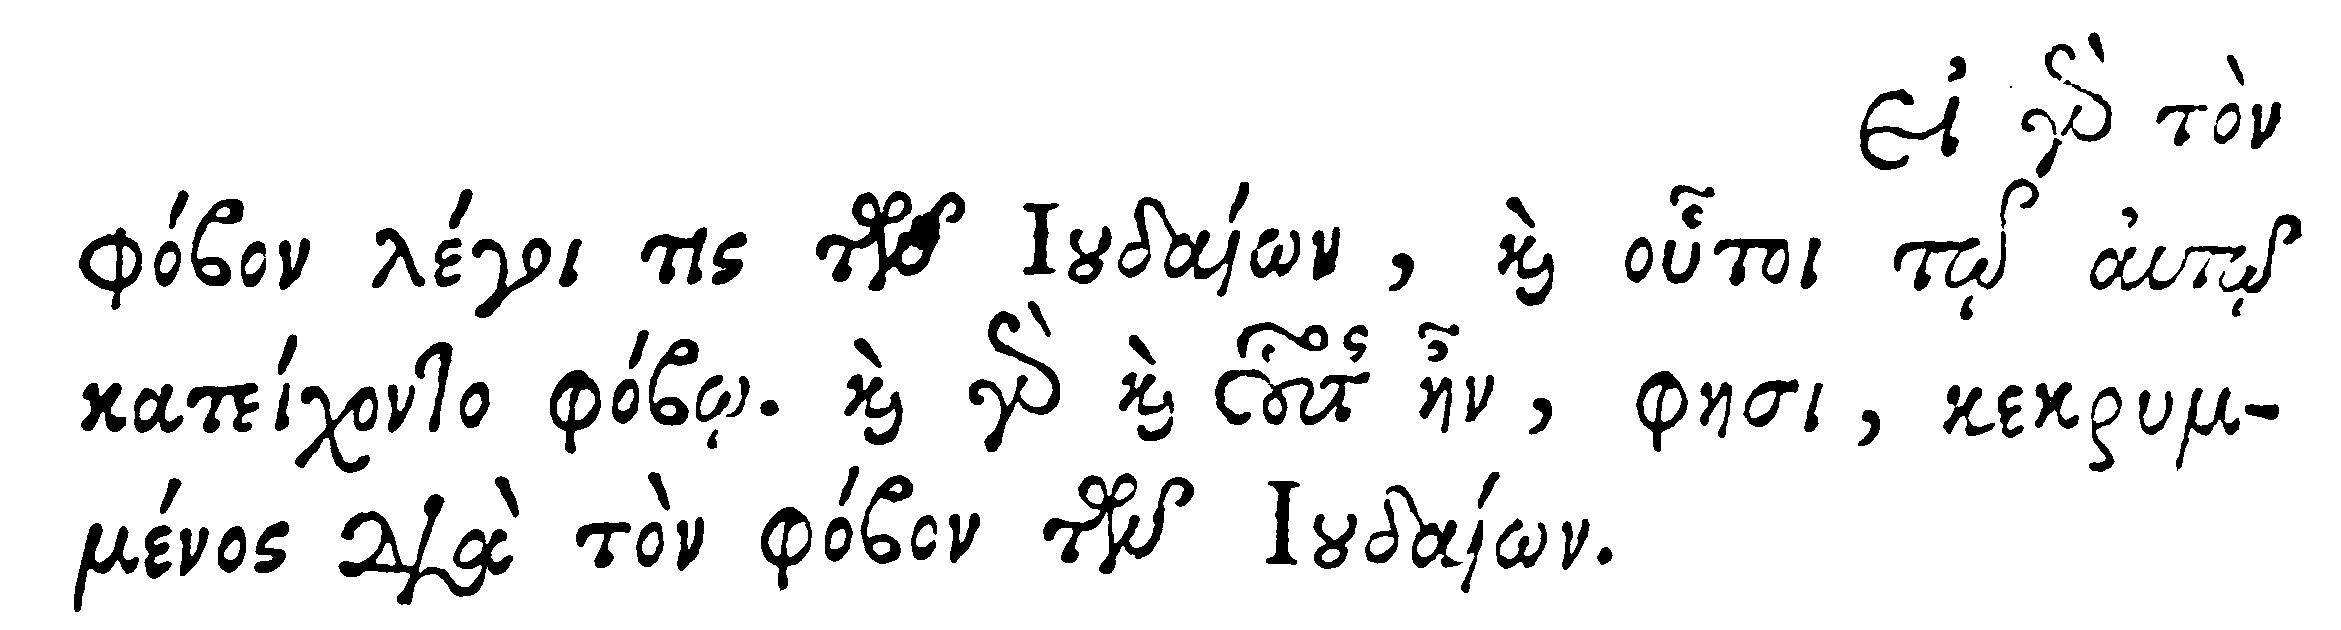 Εἰ γὰρ τὸν
φόβον λέγοι τις τῶν Ιουδαίων, καὶ οὗτοι τῷ ἀυτῷ
κατείχοντο φόβῳ. καὶ γὰρ καὶ οὗτος ἦν, φησι, κεκρυμ-
μένος διὰ τὸν φόβον τῶν Ιουδαίων.